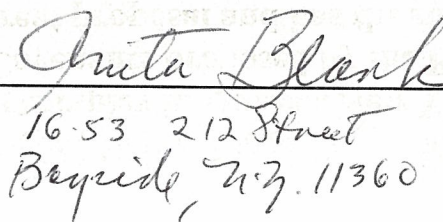 Anita Blank
16-53 212 Street
Bayside, N.Y. 11360